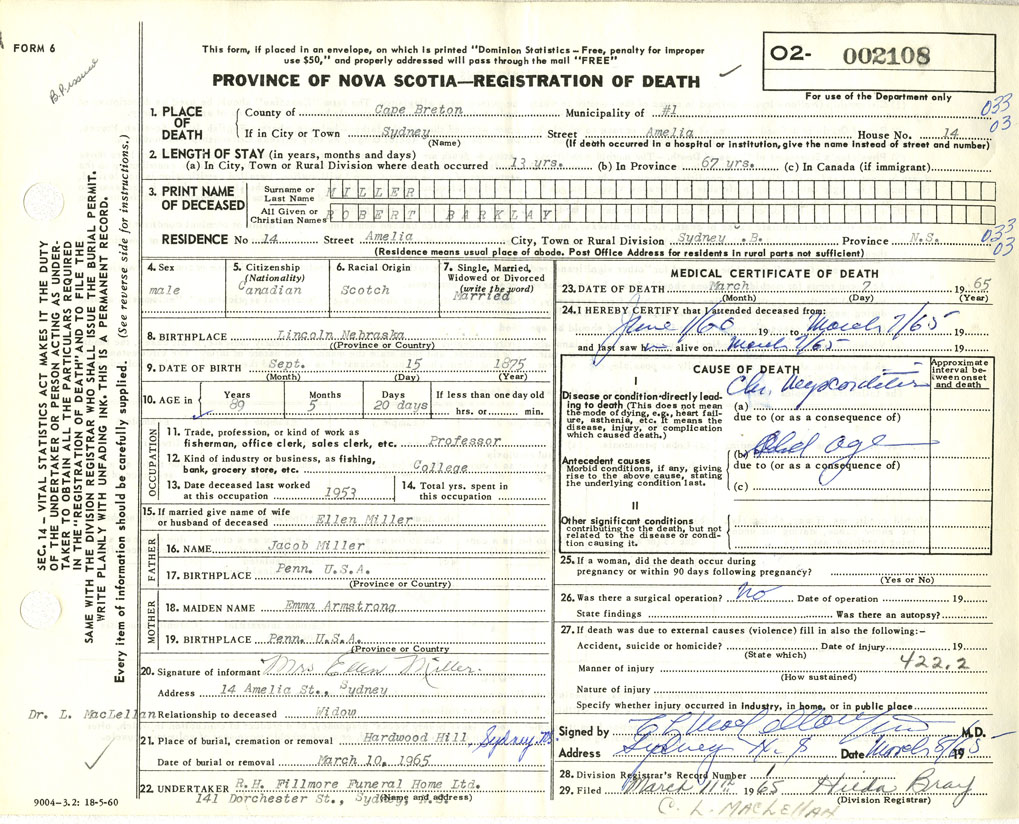 FORM 6
This form, if placed in an envelope, on which is printed "Dominion Statistics – Free, penalty for improper
use $50," and properly addressed will pass through the mail "FREE"
PROVINCE OF NOVA SCOTIA—REGISTRATION OF DEATH
02- 002108
For use of the Department only
SEC. 14 – VITAL STATISTICS ACT MAKES IT THE DUTY
OF THE UNDERTAKER OR PERSON ACTING AS UNDER-
TAKER TO OBTAIN ALL THE PARTICULARS REQUIRED
IN THE "REGISTRATION OF DEATH" AND TO FILE THE
SAME WITH THE DIVISION REGISTRAR WHO SHALL ISSUE THE BURIAL PERMIT.
WRITE PLAINLY WITH UNFADING INK. THIS IS A PERMANENT RECORD.
Every item of information should be carefully supplied. (See reverse side for instructions.)
1. PLACE OF DEATH
County of Cape Breton Municipality of #1
033
03
If in City or Town Sydney Street Amelia House No. 14
(Name) (If death occurred in a hospital or institution, give the name instead of street and number)
2. LENGTH OF STAY (in years, months and days)
(a) In City, Town or Rural Division where death occurred 13 yrs. (b) In Province 67 yrs. (c) In Canada (if immigrant)
3. PRINT NAME OF DECEASED
Surname or Last Name MILLER
All Given or Christian Names ROBERT BARKLAY
RESIDENCE No 14 Street Amelia City, Town or Rural Division Sydney .B. Province N.S.
033
03
(Residence means usual place of abode. Post Office Address for residents in rural parts not sufficient)
4. Sex
male
5. Citizenship
(Nationality)
Canadian
6. Racial Origin
Scotch
7. Single, Married,
Widowed or Divorced
(write the word)
Married
8. BIRTHPLACE Lincoln Nebraska
(Province or Country)
9. DATE OF BIRTH Sept. 15 1875
(Month) (Day) (Year)
10. AGE in Years Months Days If less than one day old
89 5 20 days hrs. or min.
OCCUPATION
11. Trade, profession, or kind of work as
fisherman, office clerk, sales clerk, etc. Professor
12. Kind of industry or business, as fishing,
bank, grocery store, etc. College
13. Date deceased last worked
at this occupation 1953
14. Total yrs. spent in
this occupation
15. If married give name of wife
or husband of deceased Ellen Miller
FATHER
16. NAME Jacob Miller
17. BIRTHPLACE Penn. U.S.A.
(Province or Country)
MOTHER
18. MAIDEN NAME Emma Armstrong
19. BIRTHPLACE Penn. U.S.A.
(Province or Country)
20. Signature of informant Mrs Ellen Miller.
Address 14 Amelia St., Sydney
Dr. L. MacLellan
Relationship to deceased Widow
21. Place of burial, cremation or removal Hardwood Hill, Sydney
Date of burial or removal March 10, 1965
22. UNDERTAKER R.H. Fillmore Funeral Home Ltd.
141 Dorchester St., Sydney, N.S.
(Name and address)
9004-3.2: 18-5-60
MEDICAL CERTIFICATE OF DEATH
23. DATE OF DEATH March 7 1965
(Month) (Day) (Year)
24. I HEREBY CERTIFY that I attended deceased from:
June 1/60 19 to March 7/65 19
and last saw him alive on March 7/65 19
CAUSE OF DEATH
Approximate
interval be-
tween onset
and death
I
Disease or condition directly lead-
ing to death (This does not mean
the mode of dying, e.g., heart failure,
asthenia, etc. It means the
disease, injury, or complication
which caused death.)
(a) Chr. Myocarditis
due to (or as a consequence of)
Antecedent causes
Morbid conditions, if any, giving
rise to the above cause, stating
the underlying condition last.
(b) Old age
due to (or as a consequence of)
(c)
II
Other significant conditions
contributing to the death, but not
related to the disease or condi-
tion causing it.
25. If a woman, did the death occur during
pregnancy or within 90 days following pregnancy?
(Yes or No)
26. Was there a surgical operation? No Date of operation 19
State findings Was there an autopsy?
27. If death was due to external causes (violence) fill in also the following:–
Accident, suicide or homicide? Date of injury 19
(State which)
Manner of injury 422.2
(How sustained)
Nature of injury
Specify whether injury occurred in industry, in home, or in public place
Signed by M.D.
Address Sydney N.S Date March 8/1965
28. Division Registrar's Record Number 1
29. Filed March 11th 1965 Hilda Bray
(Division Registrar)
C. L. MACLELLAN